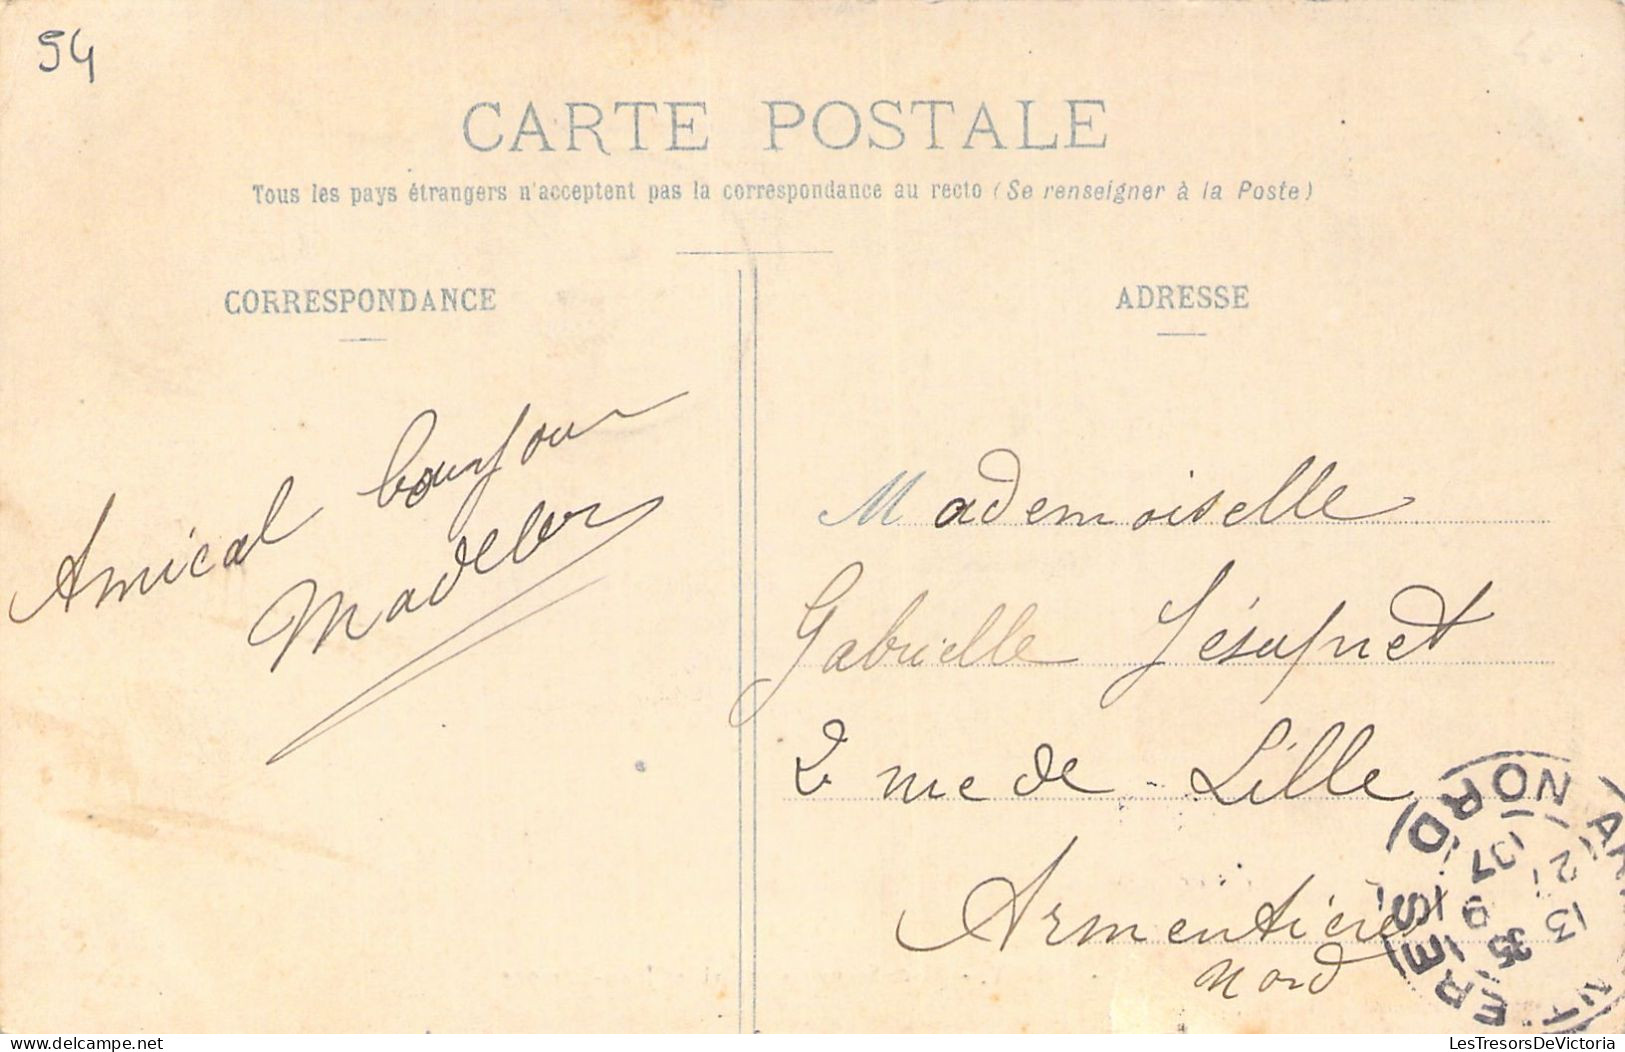 54
CARTE POSTALE
Tous les pays étrangers n'acceptent pas la correspondance au recto (Se renseigner à la Poste)
CORRESPONDANCE
Amical bonjour
ADRESSE
Mademoiselle
Gabrielle
2 rue de Lille
Armentières
Nord
NORD
13
35
07
www.LesTresorsDeVictoria.com